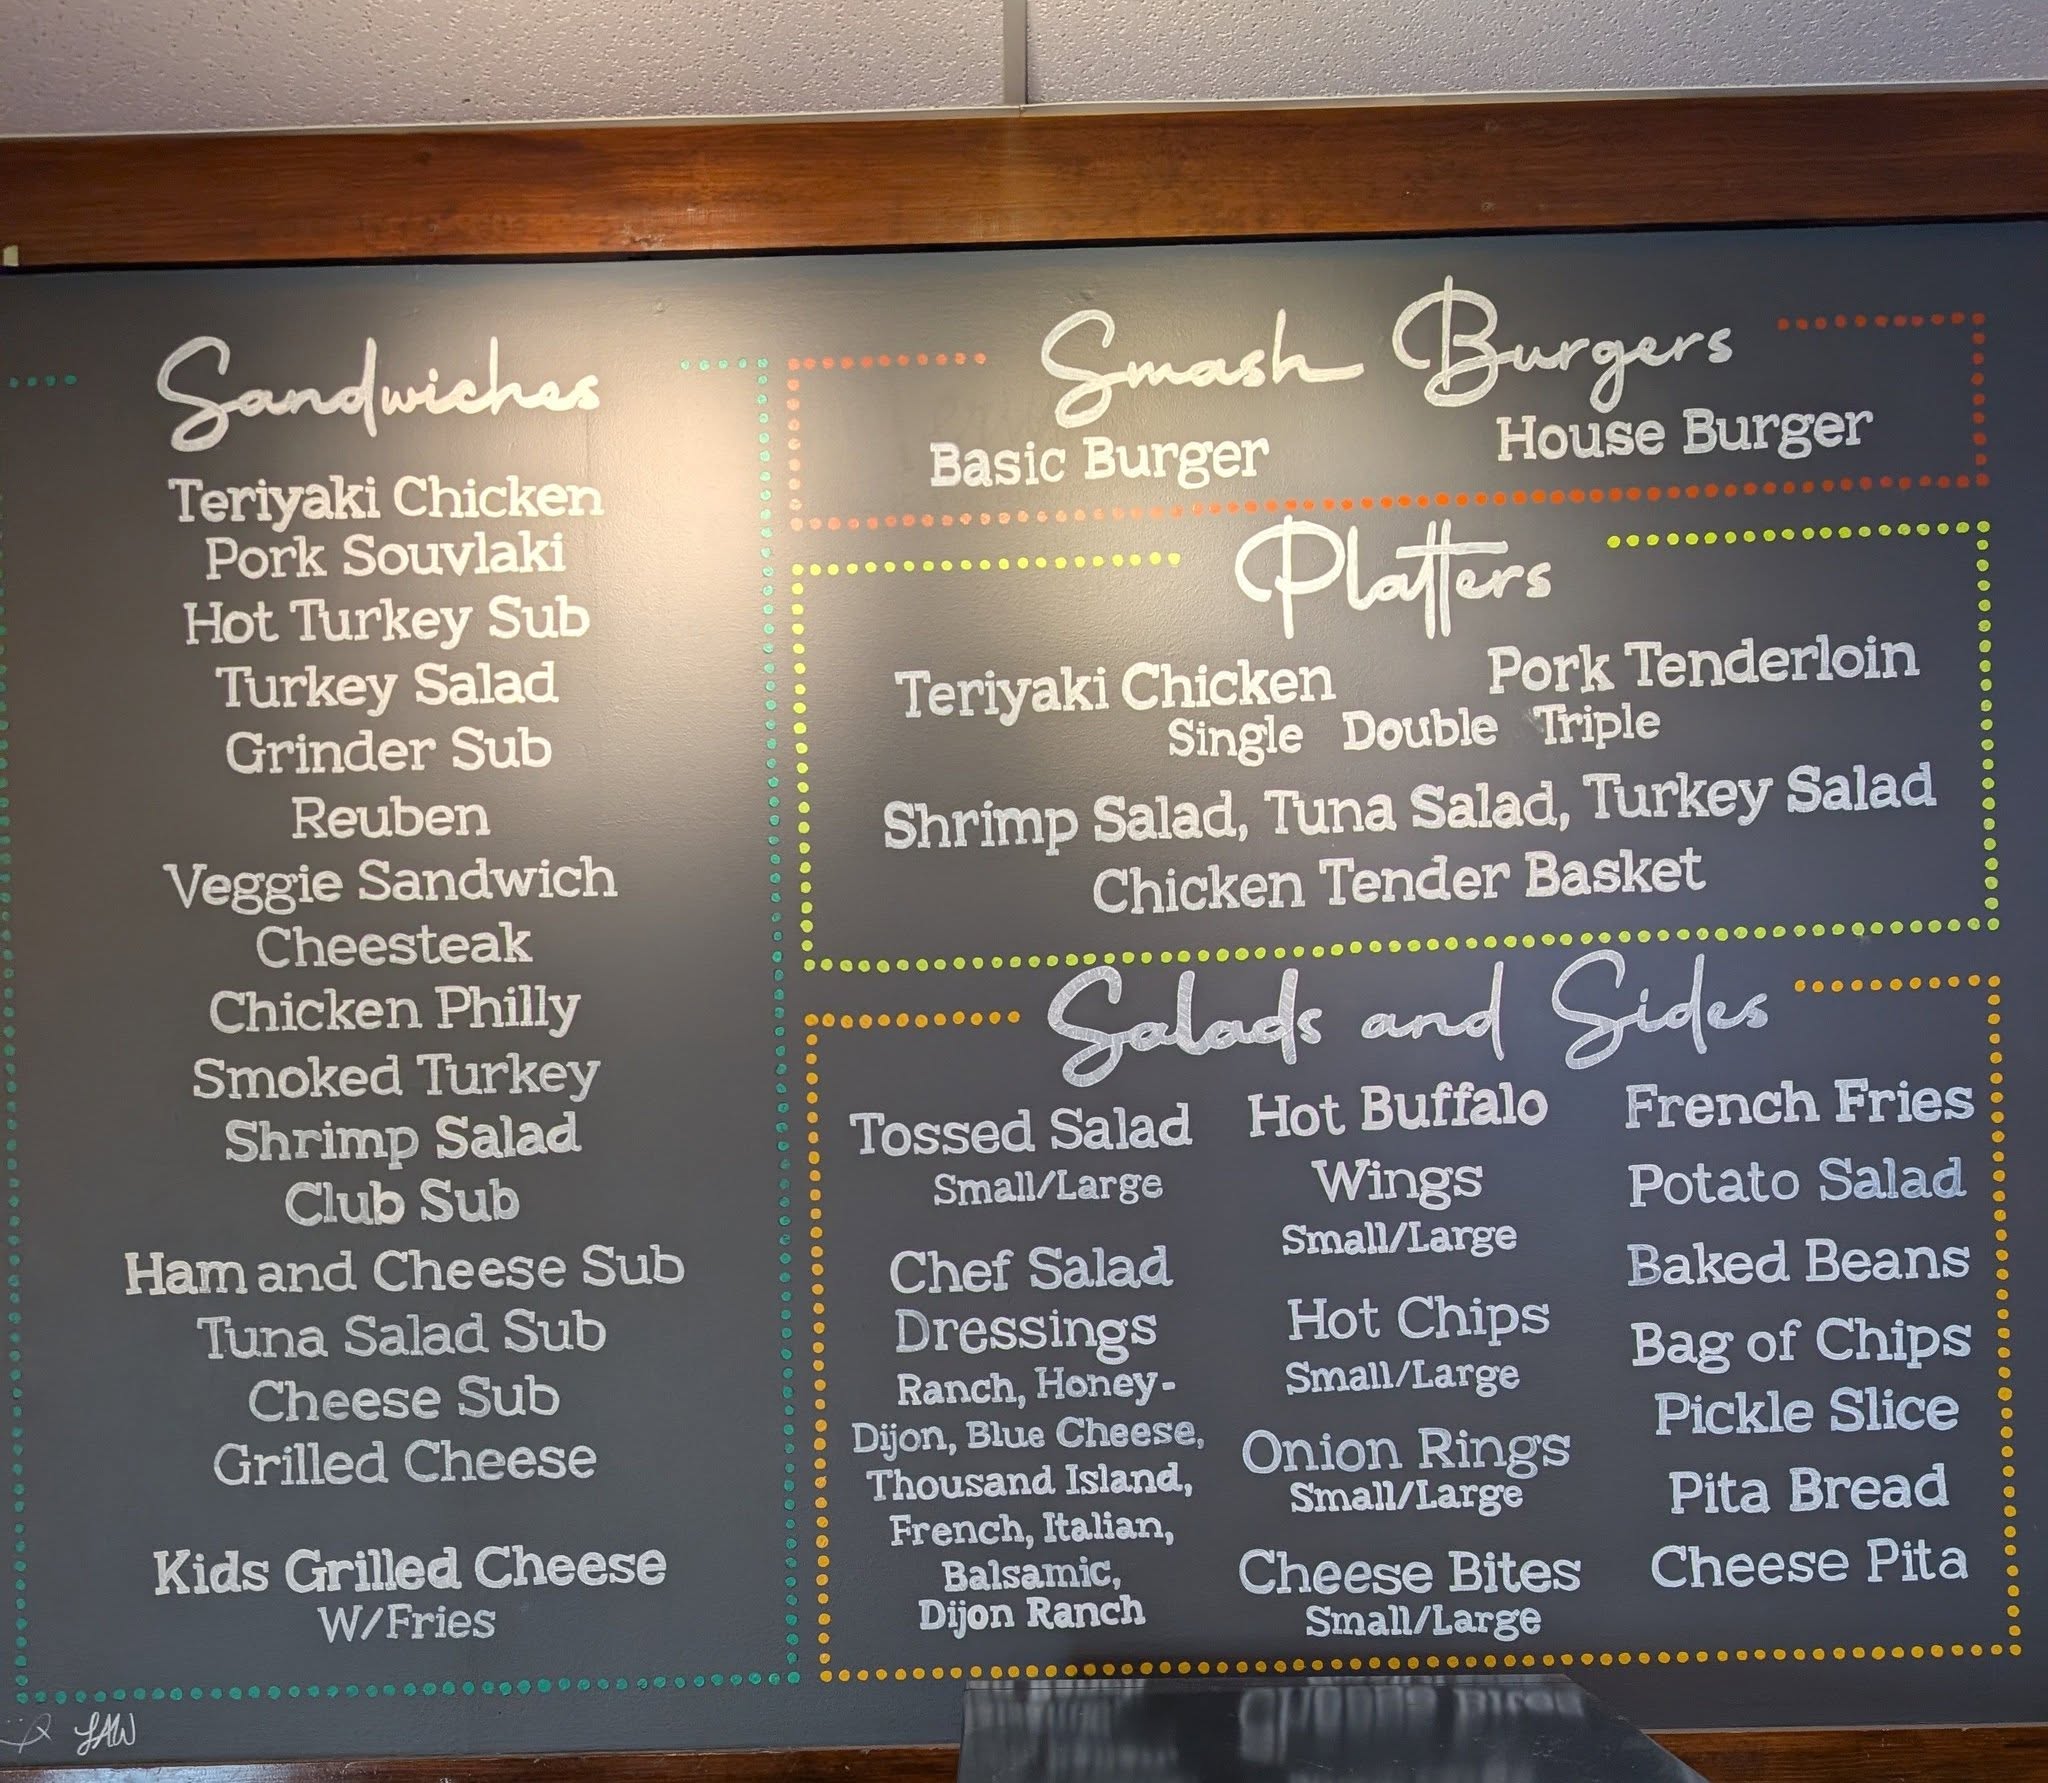 Sandwiches
Teriyaki Chicken
Pork Souvlaki
Hot Turkey Sub
Turkey Salad
Grinder Sub
Reuben
Veggie Sandwich
Cheesteak
Chicken Philly
Smoked Turkey
Shrimp Salad
Club Sub
Ham and Cheese Sub
Tuna Salad Sub
Cheese Sub
Grilled Cheese
Kids Grilled Cheese
W/Fries
Smash Burgers
Basic Burger
House Burger
Platters
Teriyaki Chicken
Pork Tenderloin
Single Double Triple
Shrimp Salad, Tuna Salad, Turkey Salad
Chicken Tender Basket
Salads and Sides
Tossed Salad
Small/Large
Chef Salad
Dressings
Ranch, Honey-
Dijon, Blue Cheese,
Thousand Island,
French, Italian,
Balsamic,
Dijon Ranch
Hot Buffalo
Wings
Small/Large
Hot Chips
Small/Large
Onion Rings
Small/Large
Cheese Bites
Small/Large
French Fries
Potato Salad
Baked Beans
Bag of Chips
Pickle Slice
Pita Bread
Cheese Pita